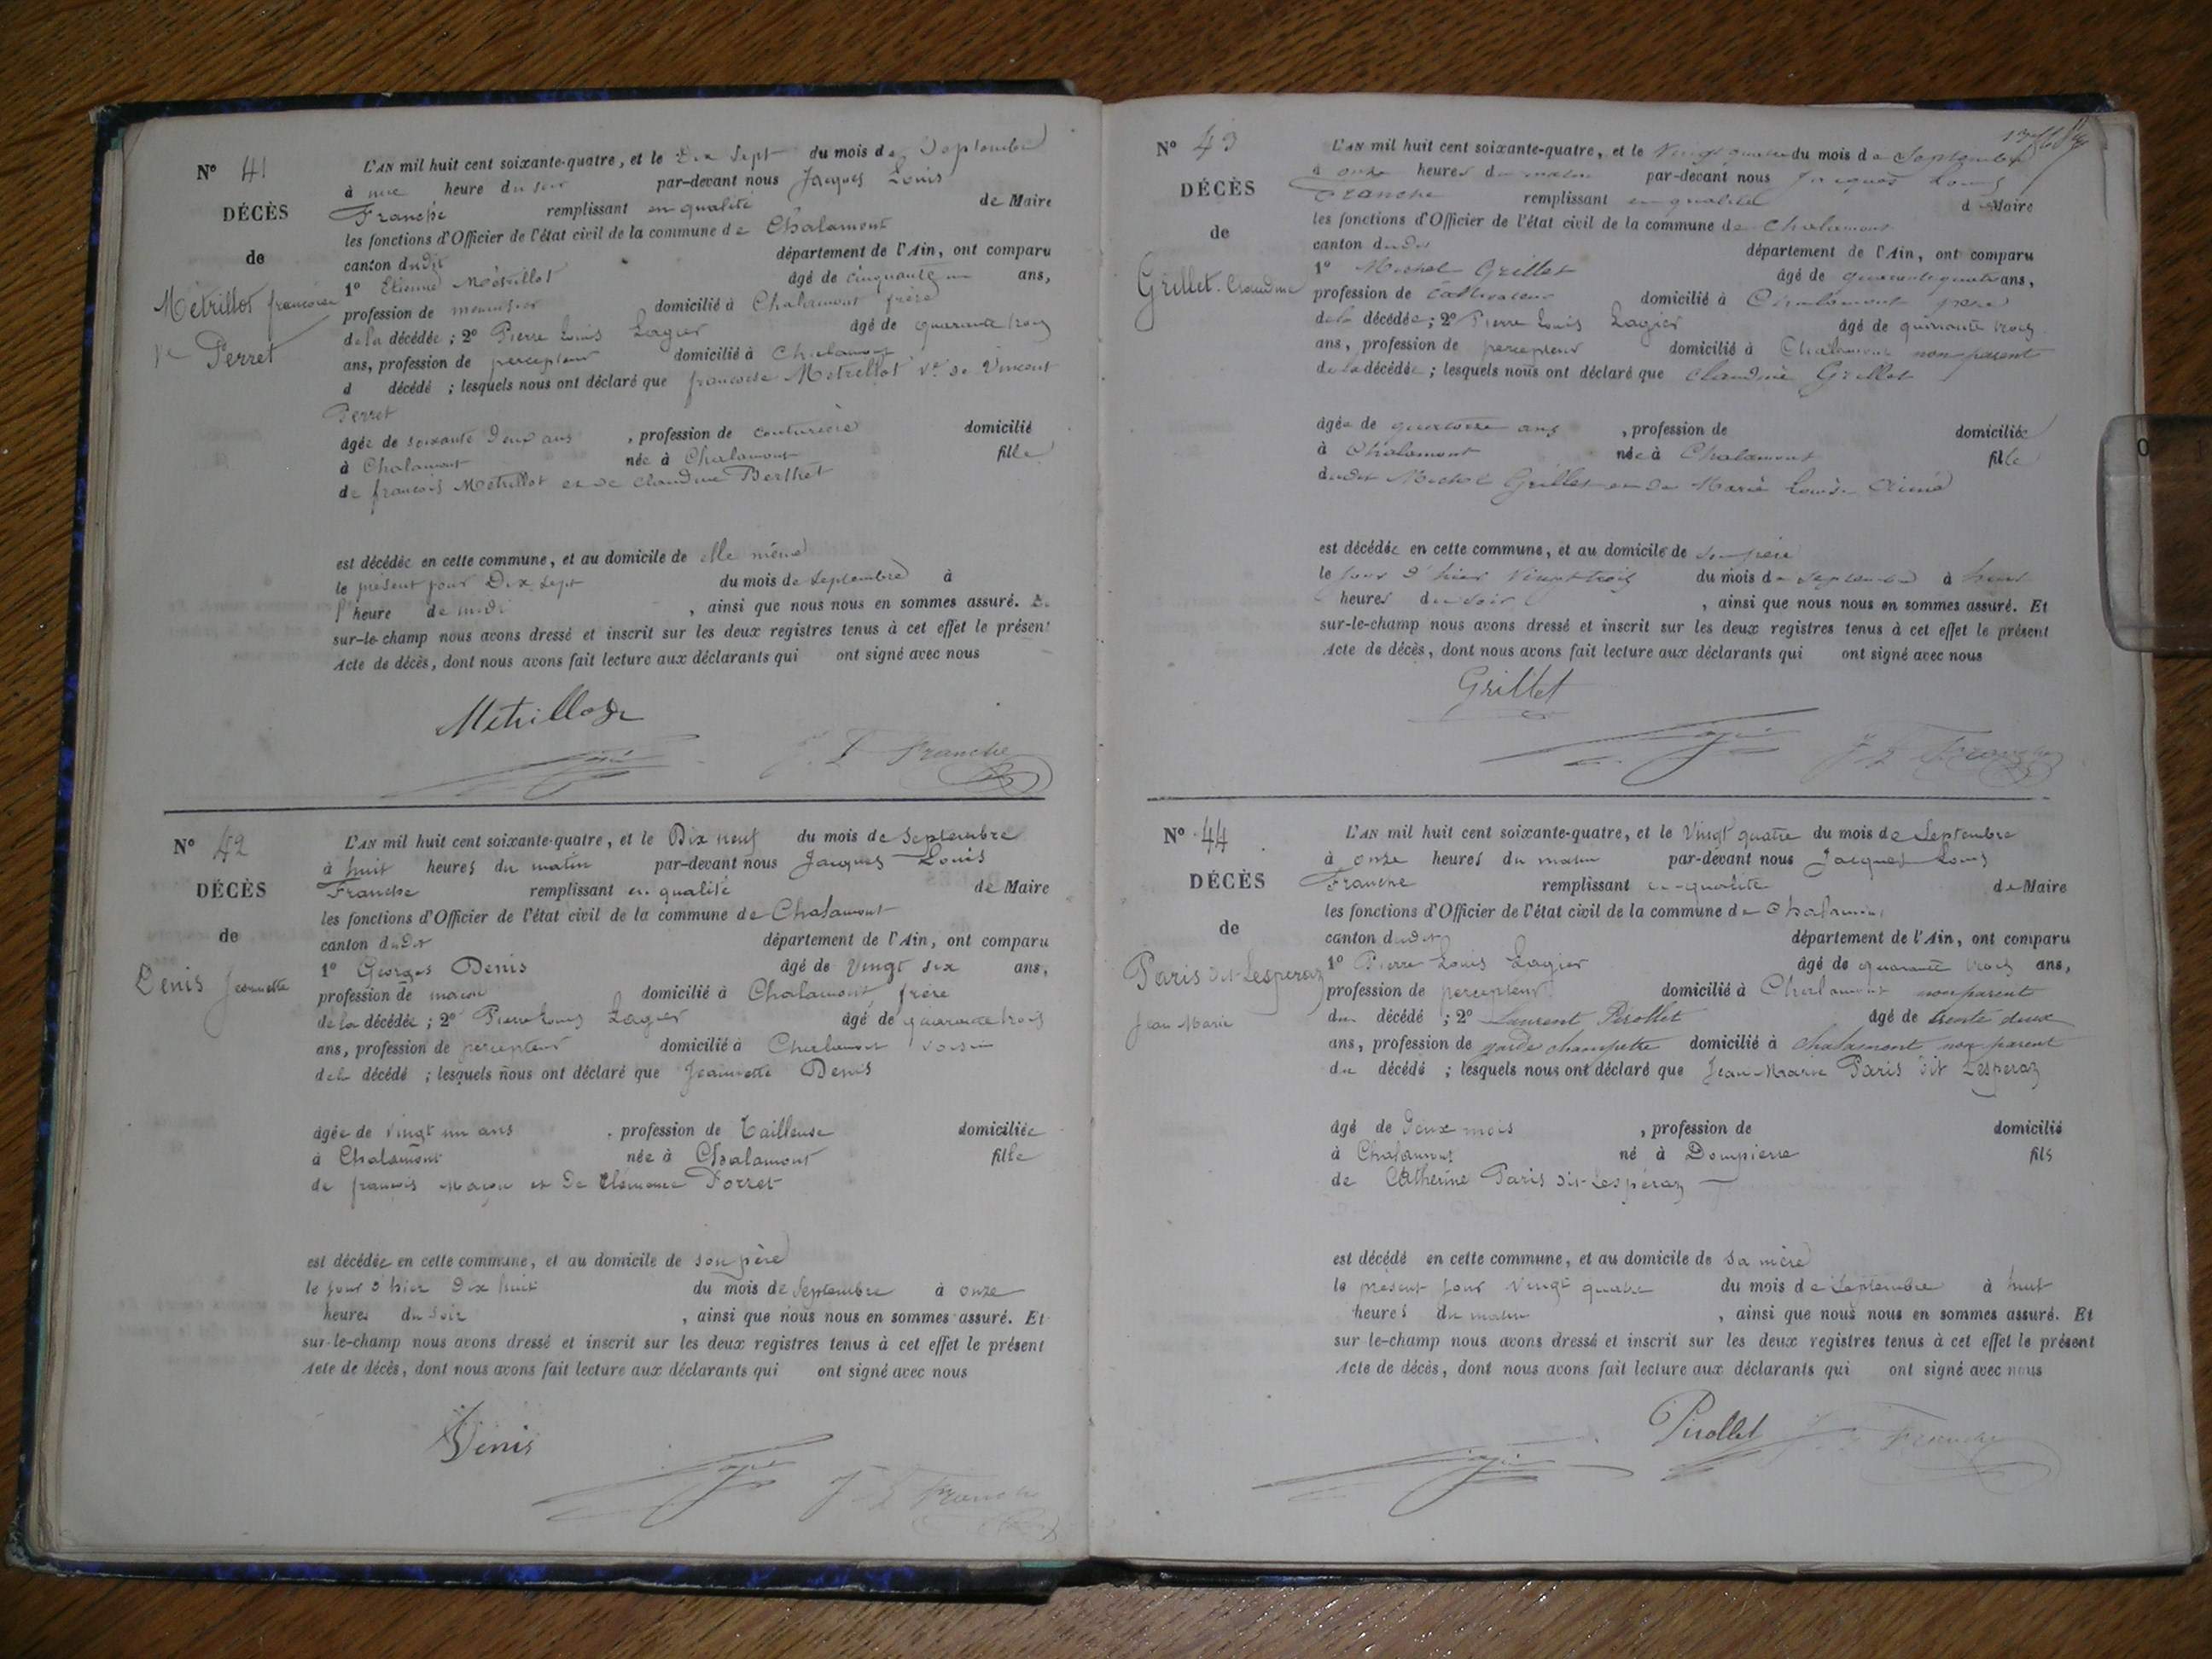 N° 41
DÉCÈS
de
Métrillot françoise
Ve Perret
L'AN mil huit cent soixante-quatre, et le Dix Sept du mois de Septembre
à une heure du soir par-devant nous Jacques Louis
Franche remplissant en qualité de Maire
les fonctions d'Officier de l'état civil de la commune de Chalamont
canton dudit département de l'Ain, ont comparu
1° Etienne Métrillot âgé de cinquante un ans,
profession de menuisier domicilié à Chalamont frère
de la décédée ; 2° Pierre Louis Lagier âgé de quarante trois
ans, profession de percepteur domicilié à Chalamont
d décédé ; lesquels nous ont déclaré que françoise Métrillot Ve de Vincent
Perret
âgée de soixante deux ans , profession de couturière domicilié
à Chalamont née à Chalamont fille
de françois Métrillot et de Claudine Berthet
est décédée en cette commune, et au domicile de elle même
le présent jour Dix Sept du mois de Septembre à
l'heure de midi , ainsi que nous nous en sommes assuré. E
sur-le-champ nous avons dressé et inscrit sur les deux registres tenus à cet effet le présent
Acte de décès, dont nous avons fait lecture aux déclarants qui ont signé avec nous
J. L Franche
N° 42
DÉCÈS
de
Denis Jeannette
L'AN mil huit cent soixante-quatre, et le Dix neuf du mois de Septembre
à huit heures du matin par-devant nous Jacques Louis
Franche remplissant en qualité de Maire
les fonctions d'Officier de l'état civil de la commune de Chalamont
canton dudit département de l'Ain, ont comparu
1° Georges Denis âgé de Vingt six ans,
profession de maçon domicilié à Chalamont frère
de la décédée ; 2° Pierre Louis Lagier âgé de quarante trois
ans, profession de percepteur domicilié à Chalamont voisin
de la décédé ; lesquels nous ont déclaré que Jeannette Denis
âgée de Vingt un ans , profession de Tailleuse domiciliée
à Chalamont née à Chalamont fille
de françois maçon et de Clémence
est décédée en cette commune, et au domicile de son père
le jour d'hier Dix huit du mois de Septembre à onze
heures du soir , ainsi que nous nous en sommes assuré. Et
sur-le-champ nous avons dressé et inscrit sur les deux registres tenus à cet effet le présent
Acte de décès, dont nous avons fait lecture aux déclarants qui ont signé avec nous
Denis
J L Franche
N° 43
DÉCÈS
de
Grillet Claudine
L'AN mil huit cent soixante-quatre, et le Vingt quatre du mois de Septembre
à onze heures du matin par-devant nous Jacques Louis
Franche remplissant en qualité de Maire
les fonctions d'Officier de l'état civil de la commune de Chalamont
canton dudit département de l'Ain, ont comparu
1° Michel Grillet âgé de quarante quatre ans,
profession de cultivateur domicilié à Chalamont père
de la décédée ; 2° Pierre Louis Lagier âgé de quarante trois
ans, profession de percepteur domicilié à Chalamont non parent
de la décédée ; lesquels nous ont déclaré que Claudine Grillet
âgée de quatorze ans , profession de domiciliée
à Chalamont née à Chalamont fille
dudit Michel Grillet et de Marie Louise
est décédée en cette commune, et au domicile de son père
le jour d'hier Vingt trois du mois de Septembre à
heures du soir , ainsi que nous nous en sommes assuré. Et
sur-le-champ nous avons dressé et inscrit sur les deux registres tenus à cet effet le présent
Acte de décès, dont nous avons fait lecture aux déclarants qui ont signé avec nous
Grillet
J L Franche
N° 44
DÉCÈS
de
Paris dit Lesperaz
Jean Marie
L'AN mil huit cent soixante-quatre, et le Vingt quatre du mois de Septembre
à onze heures du matin par-devant nous Jacques Louis
Franche remplissant en qualité de Maire
les fonctions d'Officier de l'état civil de la commune de Chalamont
canton dudit département de l'Ain, ont comparu
1° Pierre Louis Lagier âgé de quarante trois ans,
profession de percepteur domicilié à Chalamont non parent
du décédé ; 2° Laurent Pirollet âgé de trente deux
ans, profession de garde champetre domicilié à Chalamont non parent
du décédé ; lesquels nous ont déclaré que Jean-Marie Paris dit Lesperaz
âgé de Deux mois , profession de domicilié
à Chalamont né à Dompierre fils
de Catherine Paris dit Lesperaz
est décédé en cette commune, et au domicile de sa mère
le présent jour Vingt quatre du mois de Septembre à huit
heures du matin , ainsi que nous nous en sommes assuré. Et
sur-le-champ nous avons dressé et inscrit sur les deux registres tenus à cet effet le présent
Acte de décès, dont nous avons fait lecture aux déclarants qui ont signé avec nous
Pirollet J L Franche